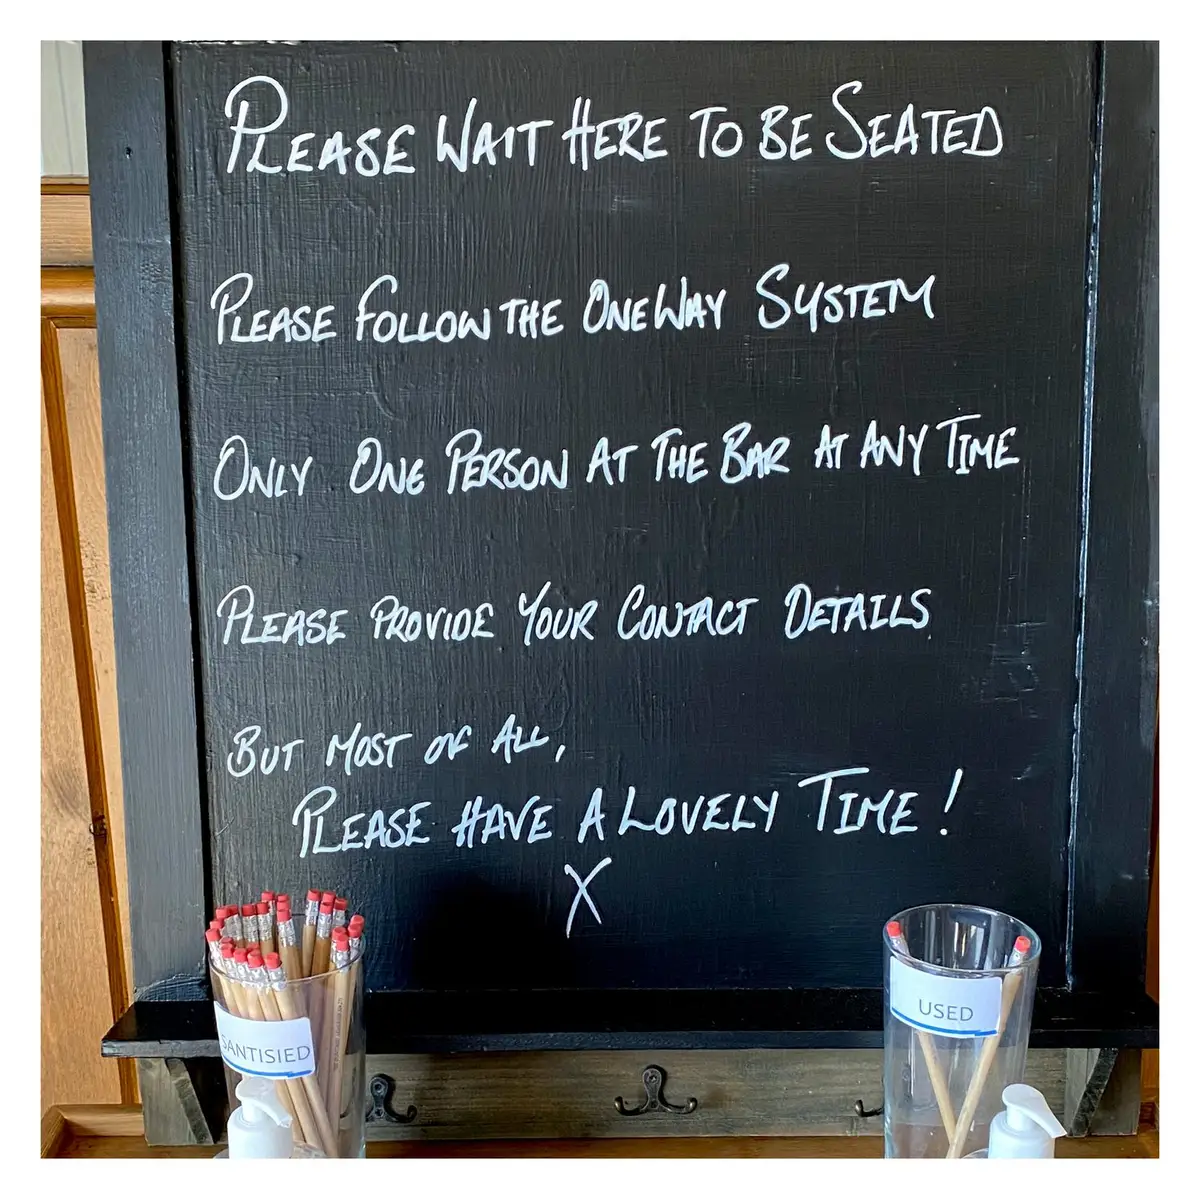 PLEASE WAIT HERE TO BE SEATED
PLEASE FOLLOW THE ONE WAY SYSTEM
ONLY ONE PERSON AT THE BAR AT ANY TIME
PLEASE PROVIDE YOUR CONTACT DETAILS
BUT MOST OF ALL,
PLEASE HAVE A LOVELY TIME!
X
SANTISIED
USED